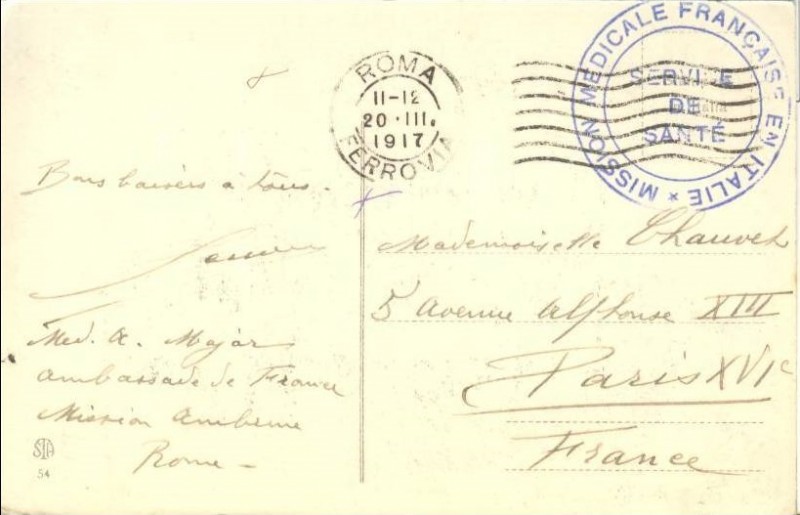 Bons baisers à tous.
Med. A. Major
Ambassade de France
Mission
Rome -
STA
54
ROMA
11-12
20·III.
1917
FERROVIA
MISSION MÉDICALE FRANÇAISE EN ITALIE *
SERVICE
DE
SANTÉ
Mademoiselle Chauvet
5 Avenue Alfonse XIII
Paris XVIe
France